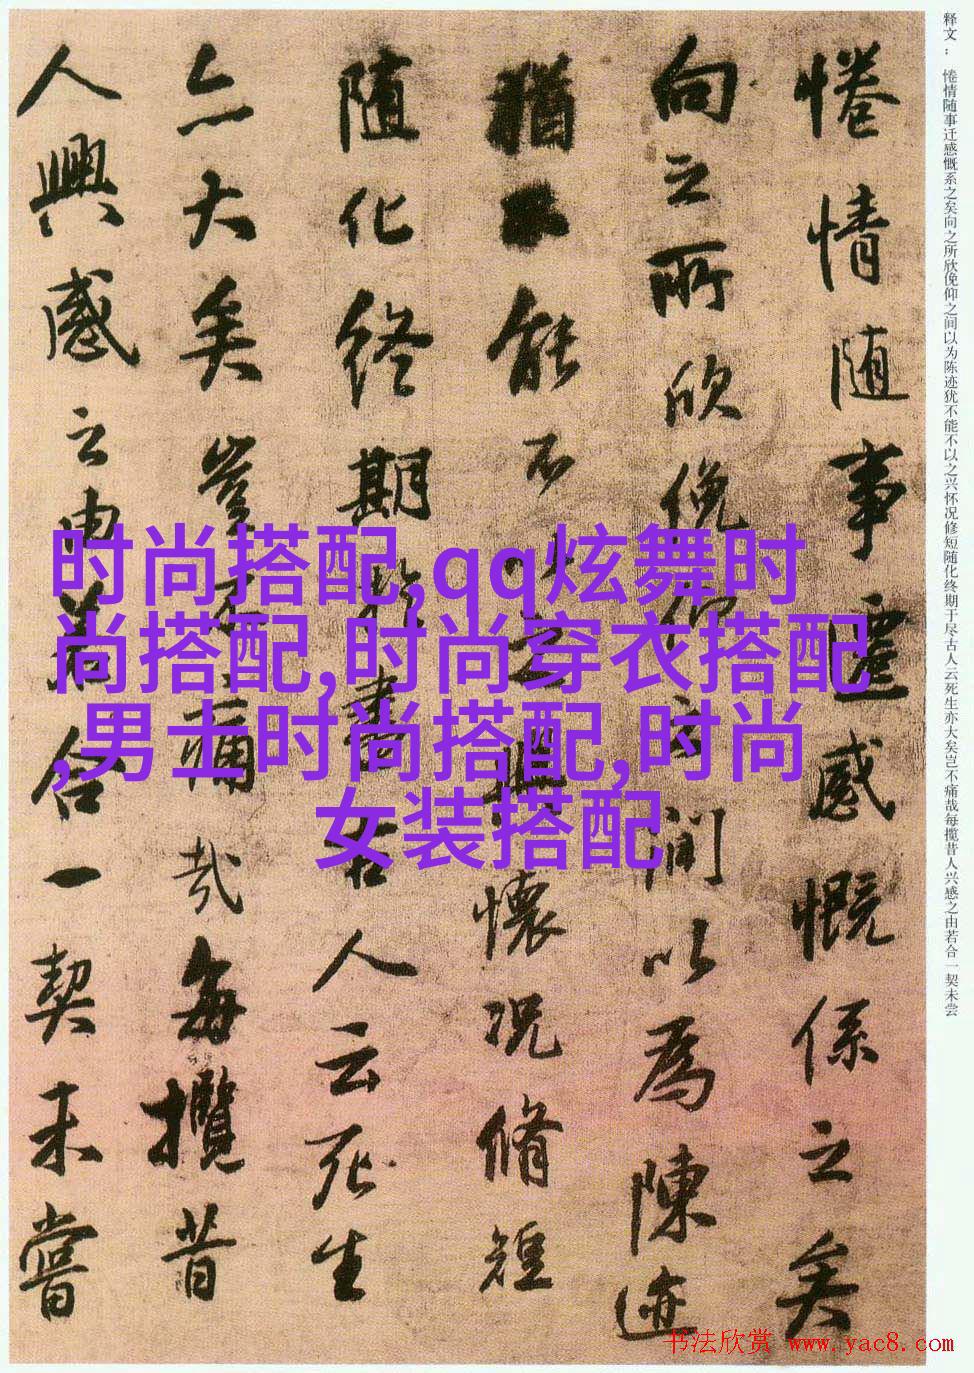 释文：惓情随事迁感慨系之矣向之所欣俛仰之间以为陈迹犹不能不以之兴怀况修短随化终期于尽古人云死生亦大矣岂不痛哉每揽昔人兴感之由若合一契未尝
惓情随事遷感慨係之矣
向之所欣俛仰之間以為陳迹
猶不能不以之興懷況脩短
随化終期於盡古人云死生
亦大矣豈不痛哉每攬昔
人興感之由若合一契未嘗
时尚搭配,qq炫舞时
尚搭配,时尚穿衣搭配
,男士时尚搭配,时尚
女装搭配
书法欣赏 www.yac8.com